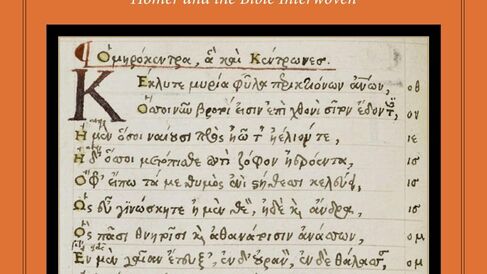 Homer and the Bible Interwoven
Ὁμηρόκεντρα, ἃ καὶ Κέντρωνες.
Κέκλυτε μυρία φῦλα περικτιόνων ἀνων,
βροτοί εἰσιν ἐπὶ χθονὶ σῖτον ἔδοντες,
Ἠμὲν ὅσοι ναίουσι πρὸς ἠῶ τ' ἠέλιόν τε,
Ἠδ' ὅσσοι μετόπισθε ποτὶ ζόφον ἠερόεντα,
Ὄφρ' εἴπω τά με θυμὸς ἐνὶ στήθεσσι κελεύει,
Ὡς εὖ γινώσκητε ἠμὲν θν, ἠδὲ κ ἄνδρα,
Ὃς πᾶσι θνητοῖσι κ ἀθανάτοισιν ἀνάσσων,
Ἐν μὲν γαῖαν ἔτευξ', ἐν δ' οὐραν, ἐν δὲ θάλασσ,